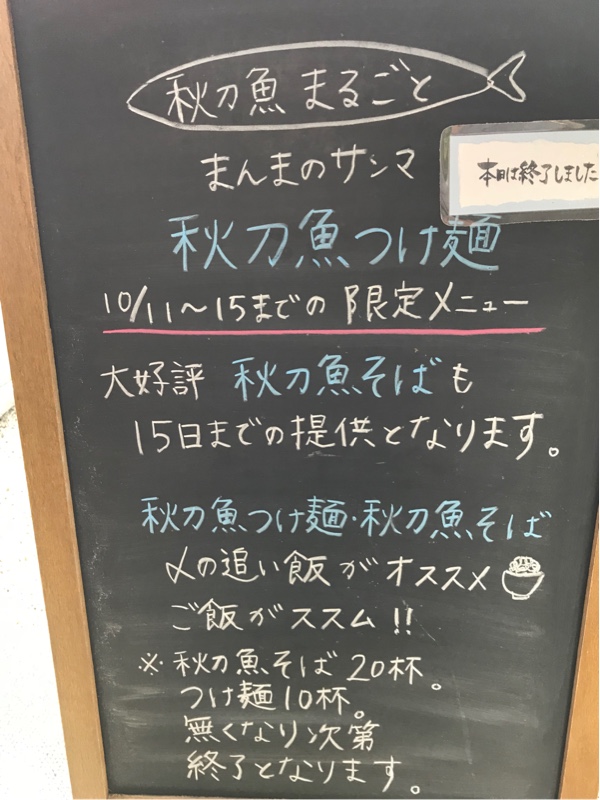 秋刀魚 まるごと
まんまのサンマ
本日は終了しました
秋刀魚つけ麺
10/11～15までの 限定メニュー
大好評 秋刀魚そばも
15日までの提供となります。
秋刀魚つけ麺・秋刀魚そば
〆の追い飯がオススメ
ご飯がススム!!
※ 秋刀魚そば 20杯。
つけ麺10杯。
無くなり次第
終了となります。